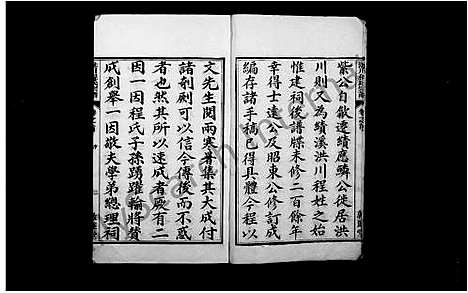 紫公自歙遷績應麟公徙居洪
川則又為績溪洪川程姓之始
惟建祠後譜牒未修二百餘年
幸得士達公及昭東公修訂成
編存諸手稿已得具體今程以
文先生閱兩寒暑集其大成付
諸剞劂可以信今傳後而不惑
者也然其所以速成者厥有二
因一因程氏子孫踴躍輸將贊
成創舉一因敬夫學弟總理祠